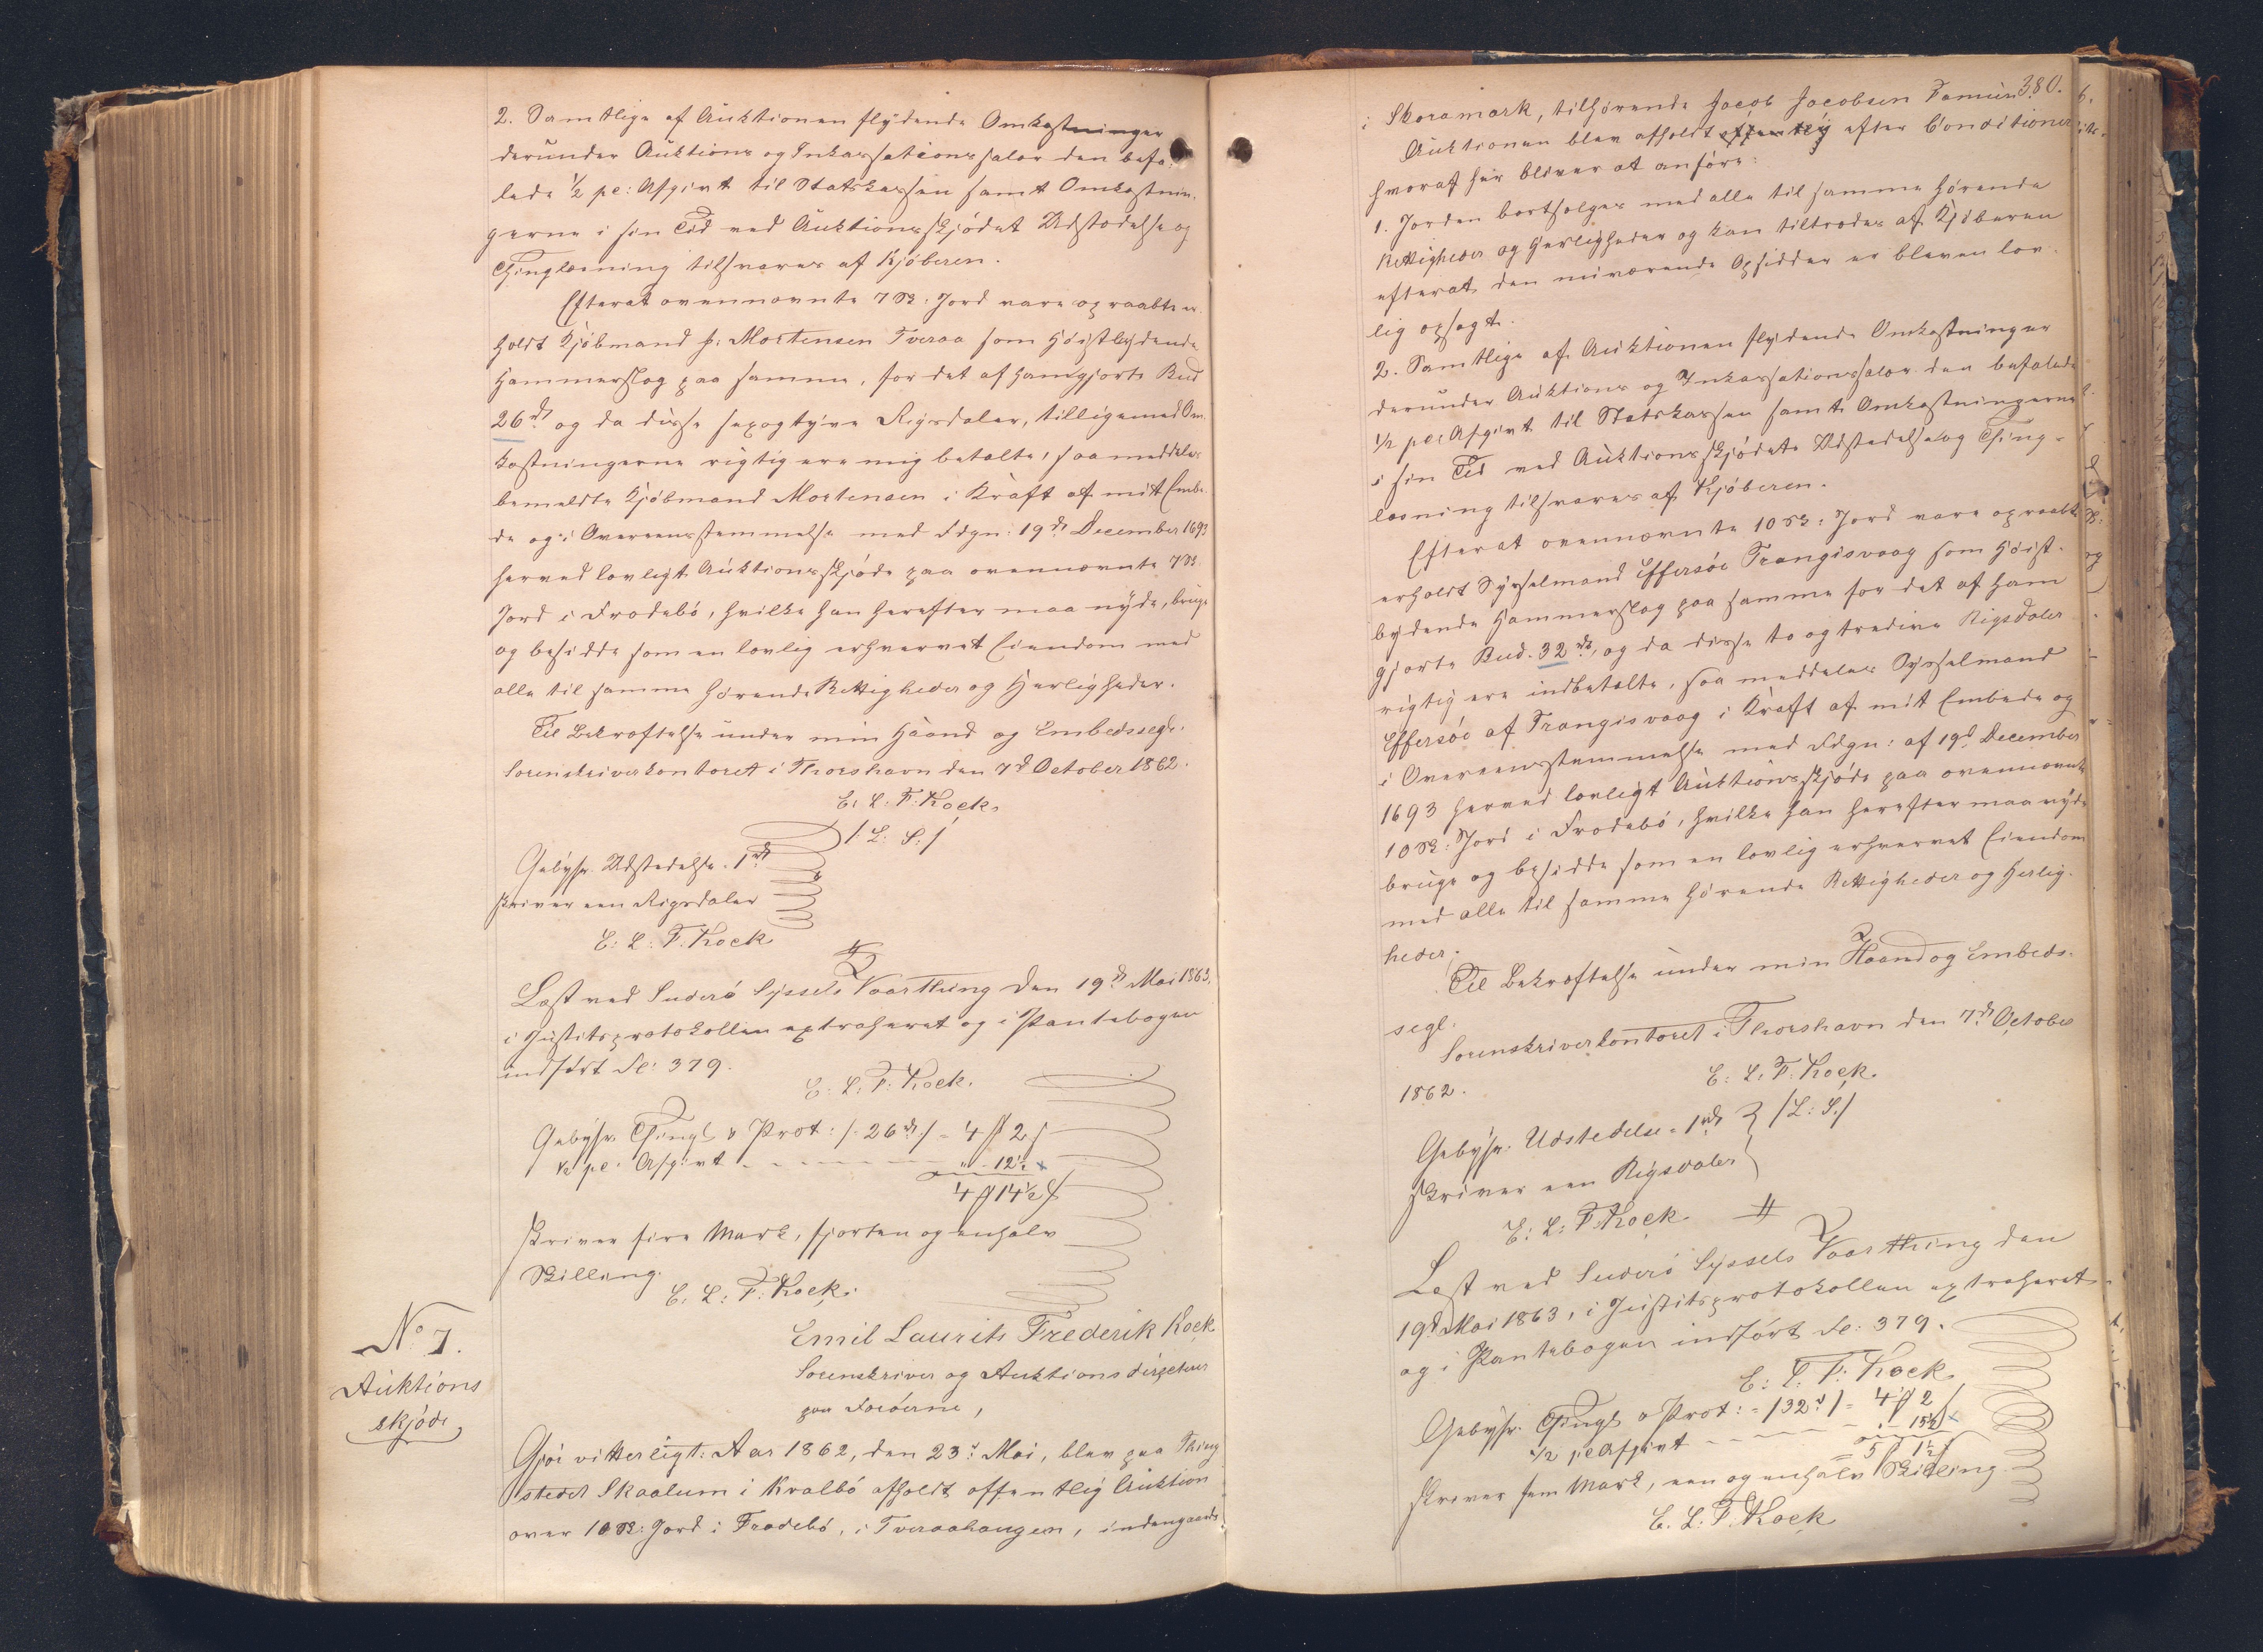 2. Samtlige af Auktionen flydende Omkostninger
derunder Auktions og Inkassationssalær den befa-
lede ½ pc: Afgivt til Statskassen samt Omkostnin-
gerne i sin Tid ved Auktionsskjödet Udstædelse og
Thinglæsning tilsvares af Kjöberen.
Efterat ovennævnte 7 Sk: Jord vare opraabte er-
holdt Kjöbmand P: Mortensen Tveraa som Höistbydende
Hammerslag paa samme, for det af ham gjorte Bud
26 rd og da disse sexogtyve Rigsdaler, tilligemed Om-
kostningerne rigtig ere mig betalte, saa meddeles
bemeldte Kjöbmand Mortensen i Kraft af mit Embe-
de og i Overeensstemmelse med Fdgn: 19de December 1693
herved lovligt Auktionsskjöde paa ovennævnte 7 Sk.
Jord i Frodebö, hvilke han herefter maa nyde, bruge
og besidde som en lovlig erhvervet Eiendom med
alle til samme hörende Rettigheder og Herligheder.
Til Bekræftelse under min Haand og Embedssegl.
Sorenskriverkontoret i Thorshavn den 7de October 1862.
E: L: F: Kock
/: L: S:/
Gebyhr. Udstedelse. 1 rd
skriver een Rigsdaler
E: L: F. Kock
Læst ved Suderö Syssels Vaarthing den 19de Mai 1863,
i Justitsprotokollen extraheret og i Pantebogen
indfört Fo: 379.
E: L: F: Kock.
Gebyhr. Thingl & Prot: /: 26 rd:/ = 4 ℳ 2 ß
½ pc: Afgivt - - - - - - " - 12½
4 ℳ 14½ ß
skriver fire Mark, fjorten og enhalv
Skilling.
E. L: F: Kock.
No 7.
Auktions
skjöde
Emil Laurits Frederik Kock
Sorenskriver og Auktionsdirecteur
paa Færöerne,
Gjör vitterligt: Aar 1862, den 23de Mai, blev paa Thing
stedet Skaalum i Kvalbö afholdt offentlig Auktion
over 10 Sk: Jord i Frodebö, i Tveraahaugen, indengaards
380.
i Skoramark, tilhörende Jacob Jacobsen Famien
Auktionen blev afholdt offentlig efter Conditioner
hvoraf her bliver at anföre:
1. Jorden bortsælges med alle til samme hörende
Rettigheder og Herligheder og kan tiltrædes af Kjöberen
efterat den nuværende Opsidder er bleven lov-
lig opsagt.
2. Samtlige af Auktionen flydende Omkostninger
derunder Auktions og Inkassationssalær den befalede
½ pc: Afgivt til Statskassen samt Omkostningerne
i sin Tid ved Auktionsskjödets Udstedelse og Thing-
læsning tilsvares af Kjöberen.
Efterat ovennævnte 10 Sk: Jord vare opraabte
erholdt Sysselmand Effersöe Trangisvaag som Höist-
bydende Hammerslag paa samme for det af ham
gjorte Bud. 32 rd, og da disse to og tredive Rigsdaler
rigtig ere indbetalte, saa meddeles Sysselmand
Effersöe af Trangisvaag i Kraft af mit Embede og
i Overeensstemmelse med Fdgn: af 19d December
1693 herved lovligt Auktionsskjöde paa ovennævnte
10 Sk: Jord i Frodebö, hvilke han herefter maa nyde
bruge og besidde som en lovlig erhvervet Eiendom
med alle til samme hörende Rettigheder og Herlig-
heder.
Til Bekræftelse under min Haand og Embeds-
segl.
Sorenskriverkontoret i Thorshavn den 7de October
1862.
E: L: F. Kock.
Gebyhr. Udstedelse = 1 rd } /L: S:/
skriver een Rigsdaler
E: L: F. Kock
Læst ved Suderö Syssels Vaarthing den
19d Mai 1863, i Justitsprotokollen extraheret
og i Pantebogen indfört Fo: 379.
E: L: F. Kock
Gebyhr. Thingl & Prot: = /32 d/ = 4 ℳ 2
½ pc Afgivt - - - - " - 15½
= 5 ℳ 1½ ß
skriver fem Mark, een og enhalv Skilling.
E. L: F. Kock